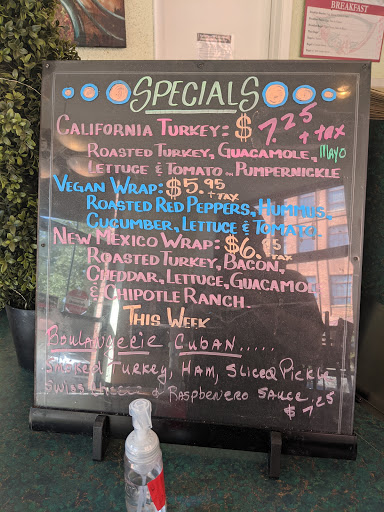 BREAKFAST
SPECIALS
CALIFORNIA TURKEY: $7.25 + tax
ROASTED TURKEY, GUACAMOLE, MAYO
LETTUCE & TOMATO on PUMPERNICKLE
VEGAN WRAP: $5.95 + TAX
ROASTED RED PEPPERS, HUMMUS,
CUCUMBER, LETTUCE & TOMATO.
NEW MEXICO WRAP: $6.95 + TAX
ROASTED TURKEY, BACON,
CHEDDAR, LETTUCE, GUACAMOLE
& CHIPOTLE RANCH.
THIS WEEK
BOULANGERIE CUBAN.....
SMOKED TURKEY, HAM, SLICED PICKLE
SWISS CHEESE & RASPBENERO SAUCE.
$7.25